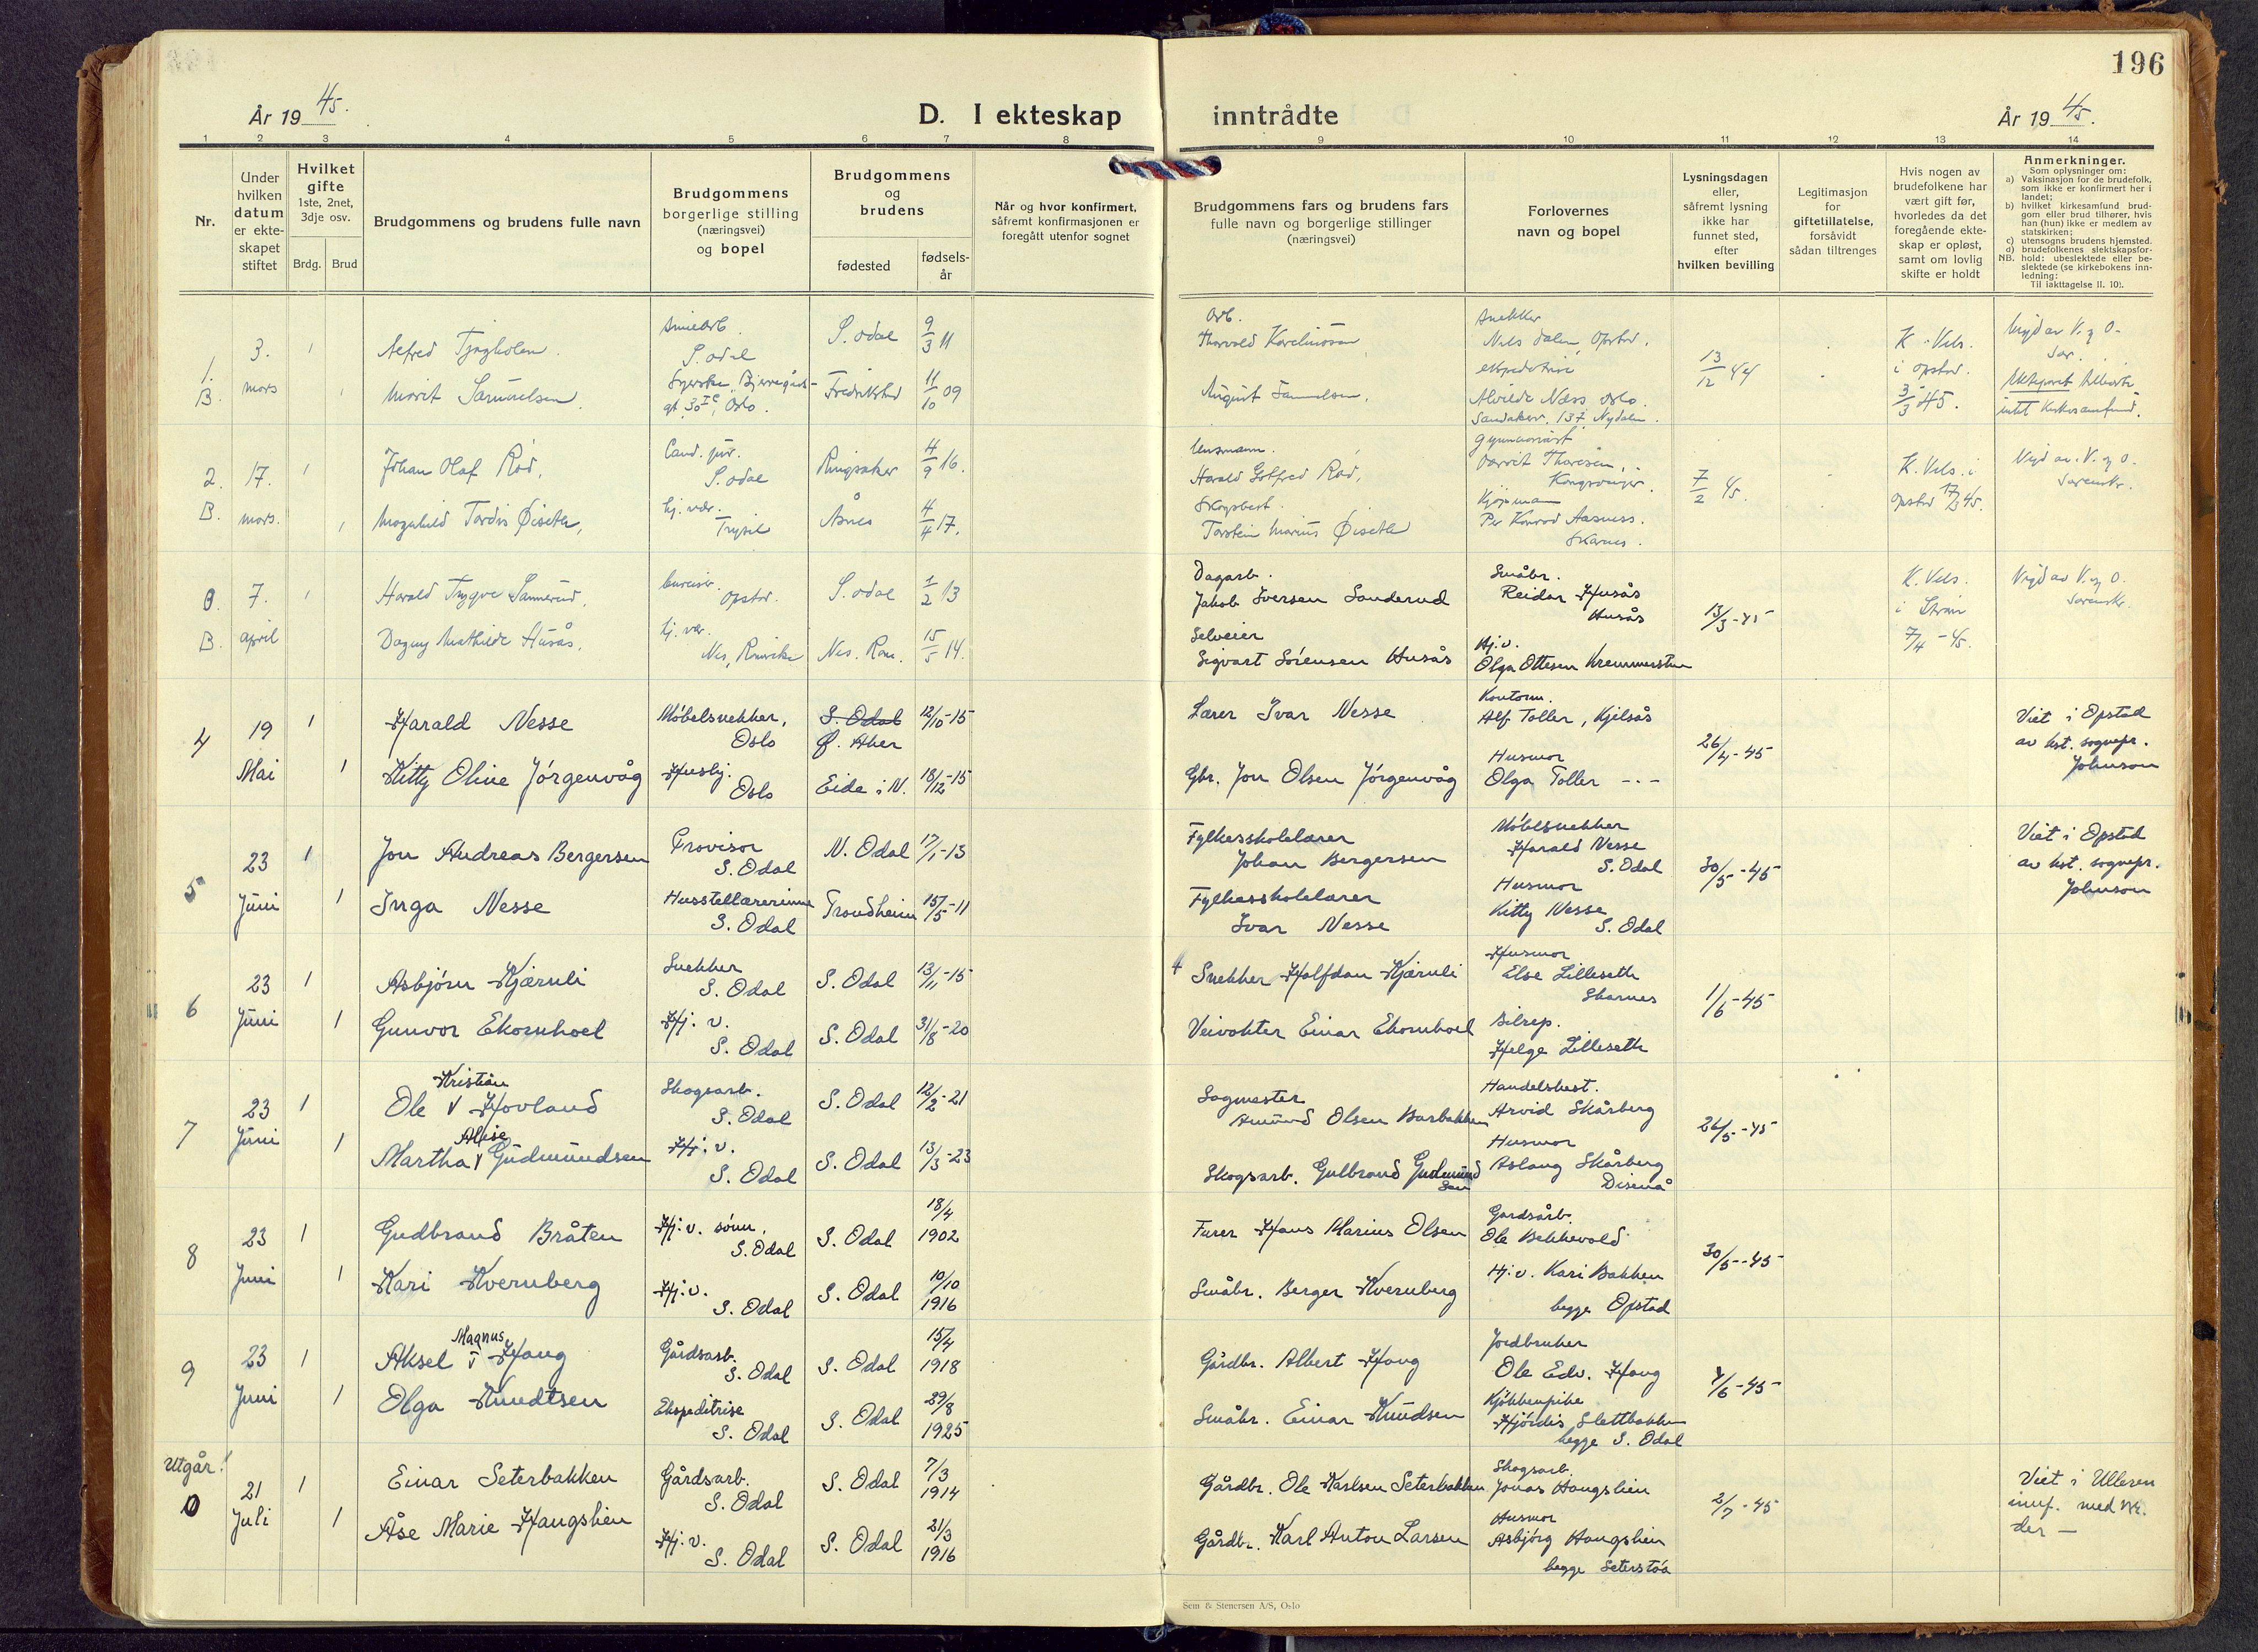 196
År 1945.
D. I ekteskap
inntrådte
År 1945.
1 2 3 4 5 6 7 8 9 10 11 12 13 14
Nr.
Under
hvilken
datum
er ekte-
skapet
stiftet
Hvilket
gifte
1ste, 2net,
3dje osv.
Brdg. Brud
Brudgommens og brudens fulle navn
Brudgommens
borgerlige stilling
(næringsvei)
og bopel
Brudgommens
og
brudens
fødested
fødsels-
år
Når og hvor konfirmert,
såfremt konfirmasjonen er
foregått utenfor sognet
Brudgommens fars og brudens fars
fulle navn og borgerlige stillinger
(næringsvei)
Forlovernes
navn og bopel
Lysningsdagen
eller,
såfremt lysning
ikke har
funnet sted,
efter
hvilken bevilling
Legitimasjon
for
giftetillatelse,
forsåvidt
sådan tiltrenges
Hvis nogen av
brudefolkene har
vært gift før,
hvorledes da det
foregående ekte-
skap er opløst,
samt om lovlig
skifte er holdt
Anmerkninger.
Som oplysninger om:
a) Vaksinasjon for de brudefolk,
som ikke er konfirmert her i
landet;
b) hvilket kirkesamfund brud-
gom eller brud tilhører, hvis
han (hun) ikke er medlem av
statskirken;
c) utensogns brudens hjemsted.
d) brudefolkenes slektskapsfor-
NB. hold: ubeslektede eller be-
slektede (se kirkebokens inn-
ledning:
Til iakttagelse II. 10).
1. B.
3. mars
1
1
Alfred
S. odal
Marit Samuelsen
gt. 30 Oslo.
S. odal 9/3 11
Fredrikstad 11/10 09
Arb.
Thorvald
August Samuelsen,
Snekker
Nils Dalen, Opstad.
Alvilde Næss Oslo.
Sandakerv. 137 Nydalen.
13/12 44
K. Vels.
i Opstad.
3/3 45.
Vigd av V. og O.
2. B.
17. mars.
1
1
Johan Olaf Rød,
Cand. jur.
S. odal
Magnhild Tordis Øiseth,
Hj. vær.
Trysil
Ringsaker 4/9 16.
Åsnes 4/4 17.
Lensmann.
Harald Gotfred Rød,
Skogsbest.
Torstein Marius Øiseth
Gymnasiast
Thoresen,
Kongsvinger.
Kjøpmann
Per Konrad Aasness.
Skarnes.
7/2 45.
K. Vels. i
Opstad 17/3 45.
Vigd av V. og O.
3. B.
7. april
1
Harald Trygve Sannerud,
Opstad.
Dagny Mathilde Husås,
Hj. vær.
Nes, Romerike
S. odal 1/2 13
Nes. Rom. 15/5 14.
Dagarb.
Jakob Iversen Sanderud
Selveier
Sigvart Sørensen Husås
Småbr.
Reidar Husås
Husås
Hj. v.
Olga Ottesen
13/3-45
K. Vels.
7/4 -45.
Vigd av V. og O.
4
19
Mai
1
1
Harald Nesse
Møbelsnekker,
Oslo
Kitty Oline Jørgenvåg
Hushj.
Oslo
S. Odal
Ø. Aker
12/10-15
Eide i N. 18/12-15
Lærer Ivar Nesse
Gbr. Jon Olsen Jørgenvåg
Kontorm.
Alf Toller, Kjelsås
Husmor
Olga Toller -"-
26/4-45
Viet i Opstad
av kst. sognepr.
Johnson
5
23
Juni
1
1
Jon Andreas Bergersen
Provisor
S. Odal
Inga Nesse
Husstellærerinne
S. Odal
N. Odal 17/1-13
Trondheim 15/5-11
Fylkesskolelærer
Johan Bergersen
Fylkesskolelærer
Ivar Nesse
Møbelsnekker
Harald Nesse
S. Odal
Husmor
Kitty Nesse
S. Odal
30/5-45
Viet i Opstad
av kst. sognepr.
Johnson
6
23
Juni
1
1
Asbjørn Kjernli
Snekker
S. Odal
Gunvor Ekornhoel
Hj. v.
S. Odal
S. Odal 13/11-15
S. Odal 31/8-20
Snekker Halfdan Kjernli
Veivokter Einar Ekornhoel
Husmor
Else Lilleseth
Skarnes
Bilrep.
Helge Lilleseth
1/6-45
7
23
Juni
1
1
Kristian
Ole V Hovland
Skogsarb.
S. Odal
Alise
Martha V Gudmundsen
Hj. v.
S. Odal
S. Odal 12/2-21
S. Odal 13/3-23
Sagmester
Amund Olsen Barbakken
Skogsarb. Gulbrand Gudmundsen
Handelsbest.
Arvid Skårberg
Husmor
Aslaug Skårberg
Disenå
26/5-45
8
23
Juni
1
1
Gudbrand Bråten
Hj. v. sønn,
S. Odal
Kari Kvernberg
Hj. v.
S. Odal
S. Odal 18/4 1902
S. Odal 10/10 1916
Furer Hans Marius Olsen
Småbr. Berger Kvernberg
Gardsarb.
Ole Bekkevold
Hj. v. Kari Bakken
begge Opstad
30/5-45
9
23
Juni
1
1
Magnus
Aksel V Haug
Gårdsarb.
S. Odal
Olga Knudtsen
Ekspeditrise
S. Odal
S. Odal 15/4 1918
S. Odal 29/8 1925
Gårdbr. Albert Haug
Småbr. Einar Knudsen
Jordbruker
Ole Edv. Haug
Kjøkkenpike
Hjørdis Slettbakken
begge S. Odal
4/6-45
Utgår!
0
21
Juli
1
1
Einar Seterbakken
Gårdsarb.
S. Odal
Åse Marie Haugslien
Hj. v.
S. Odal
S. Odal 7/3 1914
S. Odal 21/3 1916
Gårdbr. Ole Karlsen Seterbakken
Gårdbr. Karl Anton Larsen
Skogsarb.
Jonas Haugslien
Husmor
Asbjørg Haugslien
begge Seterstøa
2/7-45
Viet i Ulleren
innf. med nr.
der —
Sem & Stenersen A/S, Oslo